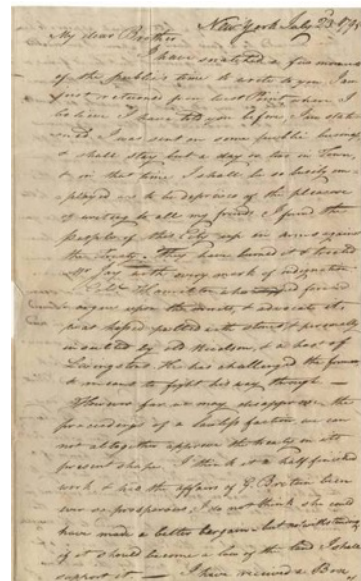 New York July 23 179
My dear Brother
I have snatched a few moments
of the public's time to write to you. I am
just returned from West Point where I
believe I have told you before, I am stati
oned. I was sent on some public business
& shall stay but a day or two in Town,
& in that time I shall be so busily em
ployed as to be deprived of the pleasure
of writing to all my friends. I found the
people of this City up in arms against
the Treaty. They have burned it & treated
Mr Jay with every mark of indignation
Coln Hamilton who
argue upon the merits, & advocate it,
was pelted with stones & personally
insulted by old & a host of
Livingstons. He has challenged the
& means to fight his way through —
However far we may disapprove the
proceedings of a lawless faction we can
not altogether approve the treaty in its
present shape. I think it a half finished
work, & had the affairs of G. Britain been
ever so prosperous, I do not think she could
have made a better bargain - but notwithstanding
if it should become a law of the land I shall
support it. — I have received a Box